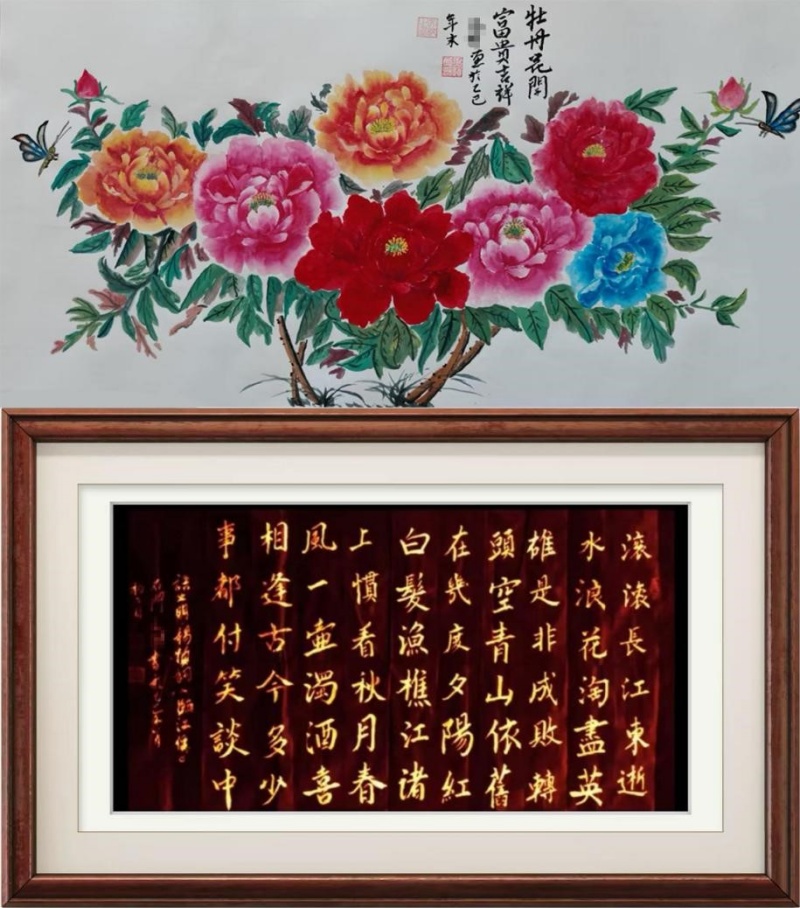 牡丹花開
富貴吉祥
画於乙巳
年末
滾滾長江東逝
水浪花淘盡英
雄是非成敗轉
頭空青山依舊
在幾度夕陽紅
白髮漁樵江渚
上慣看秋月春
風一壺濁酒喜
相逢古今多少
事都付笑談中